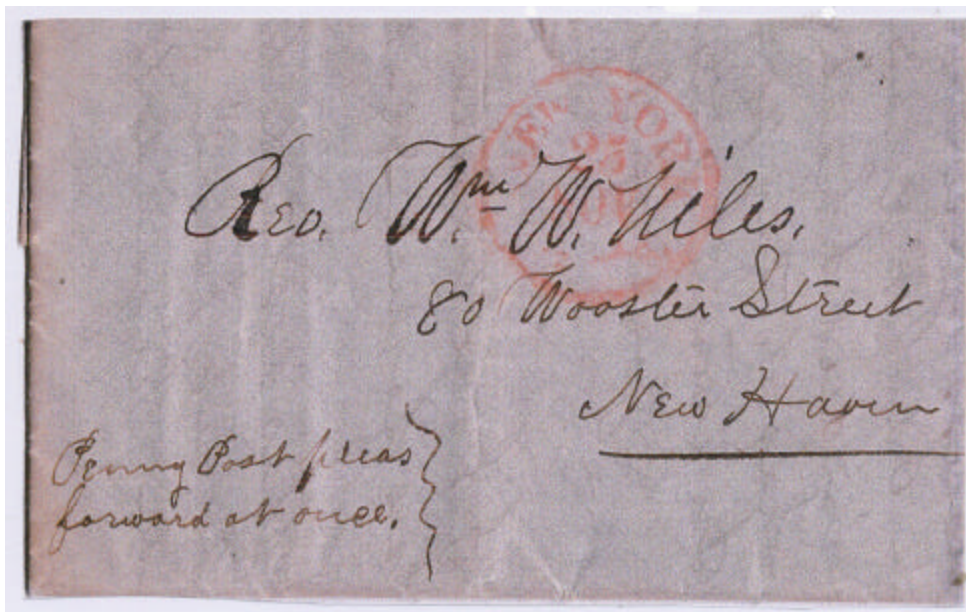 NEW YORK
25
Rev. Wm W. Niles.
80 Wooster Street
New Haven
Penny Post pleas
forward at once.